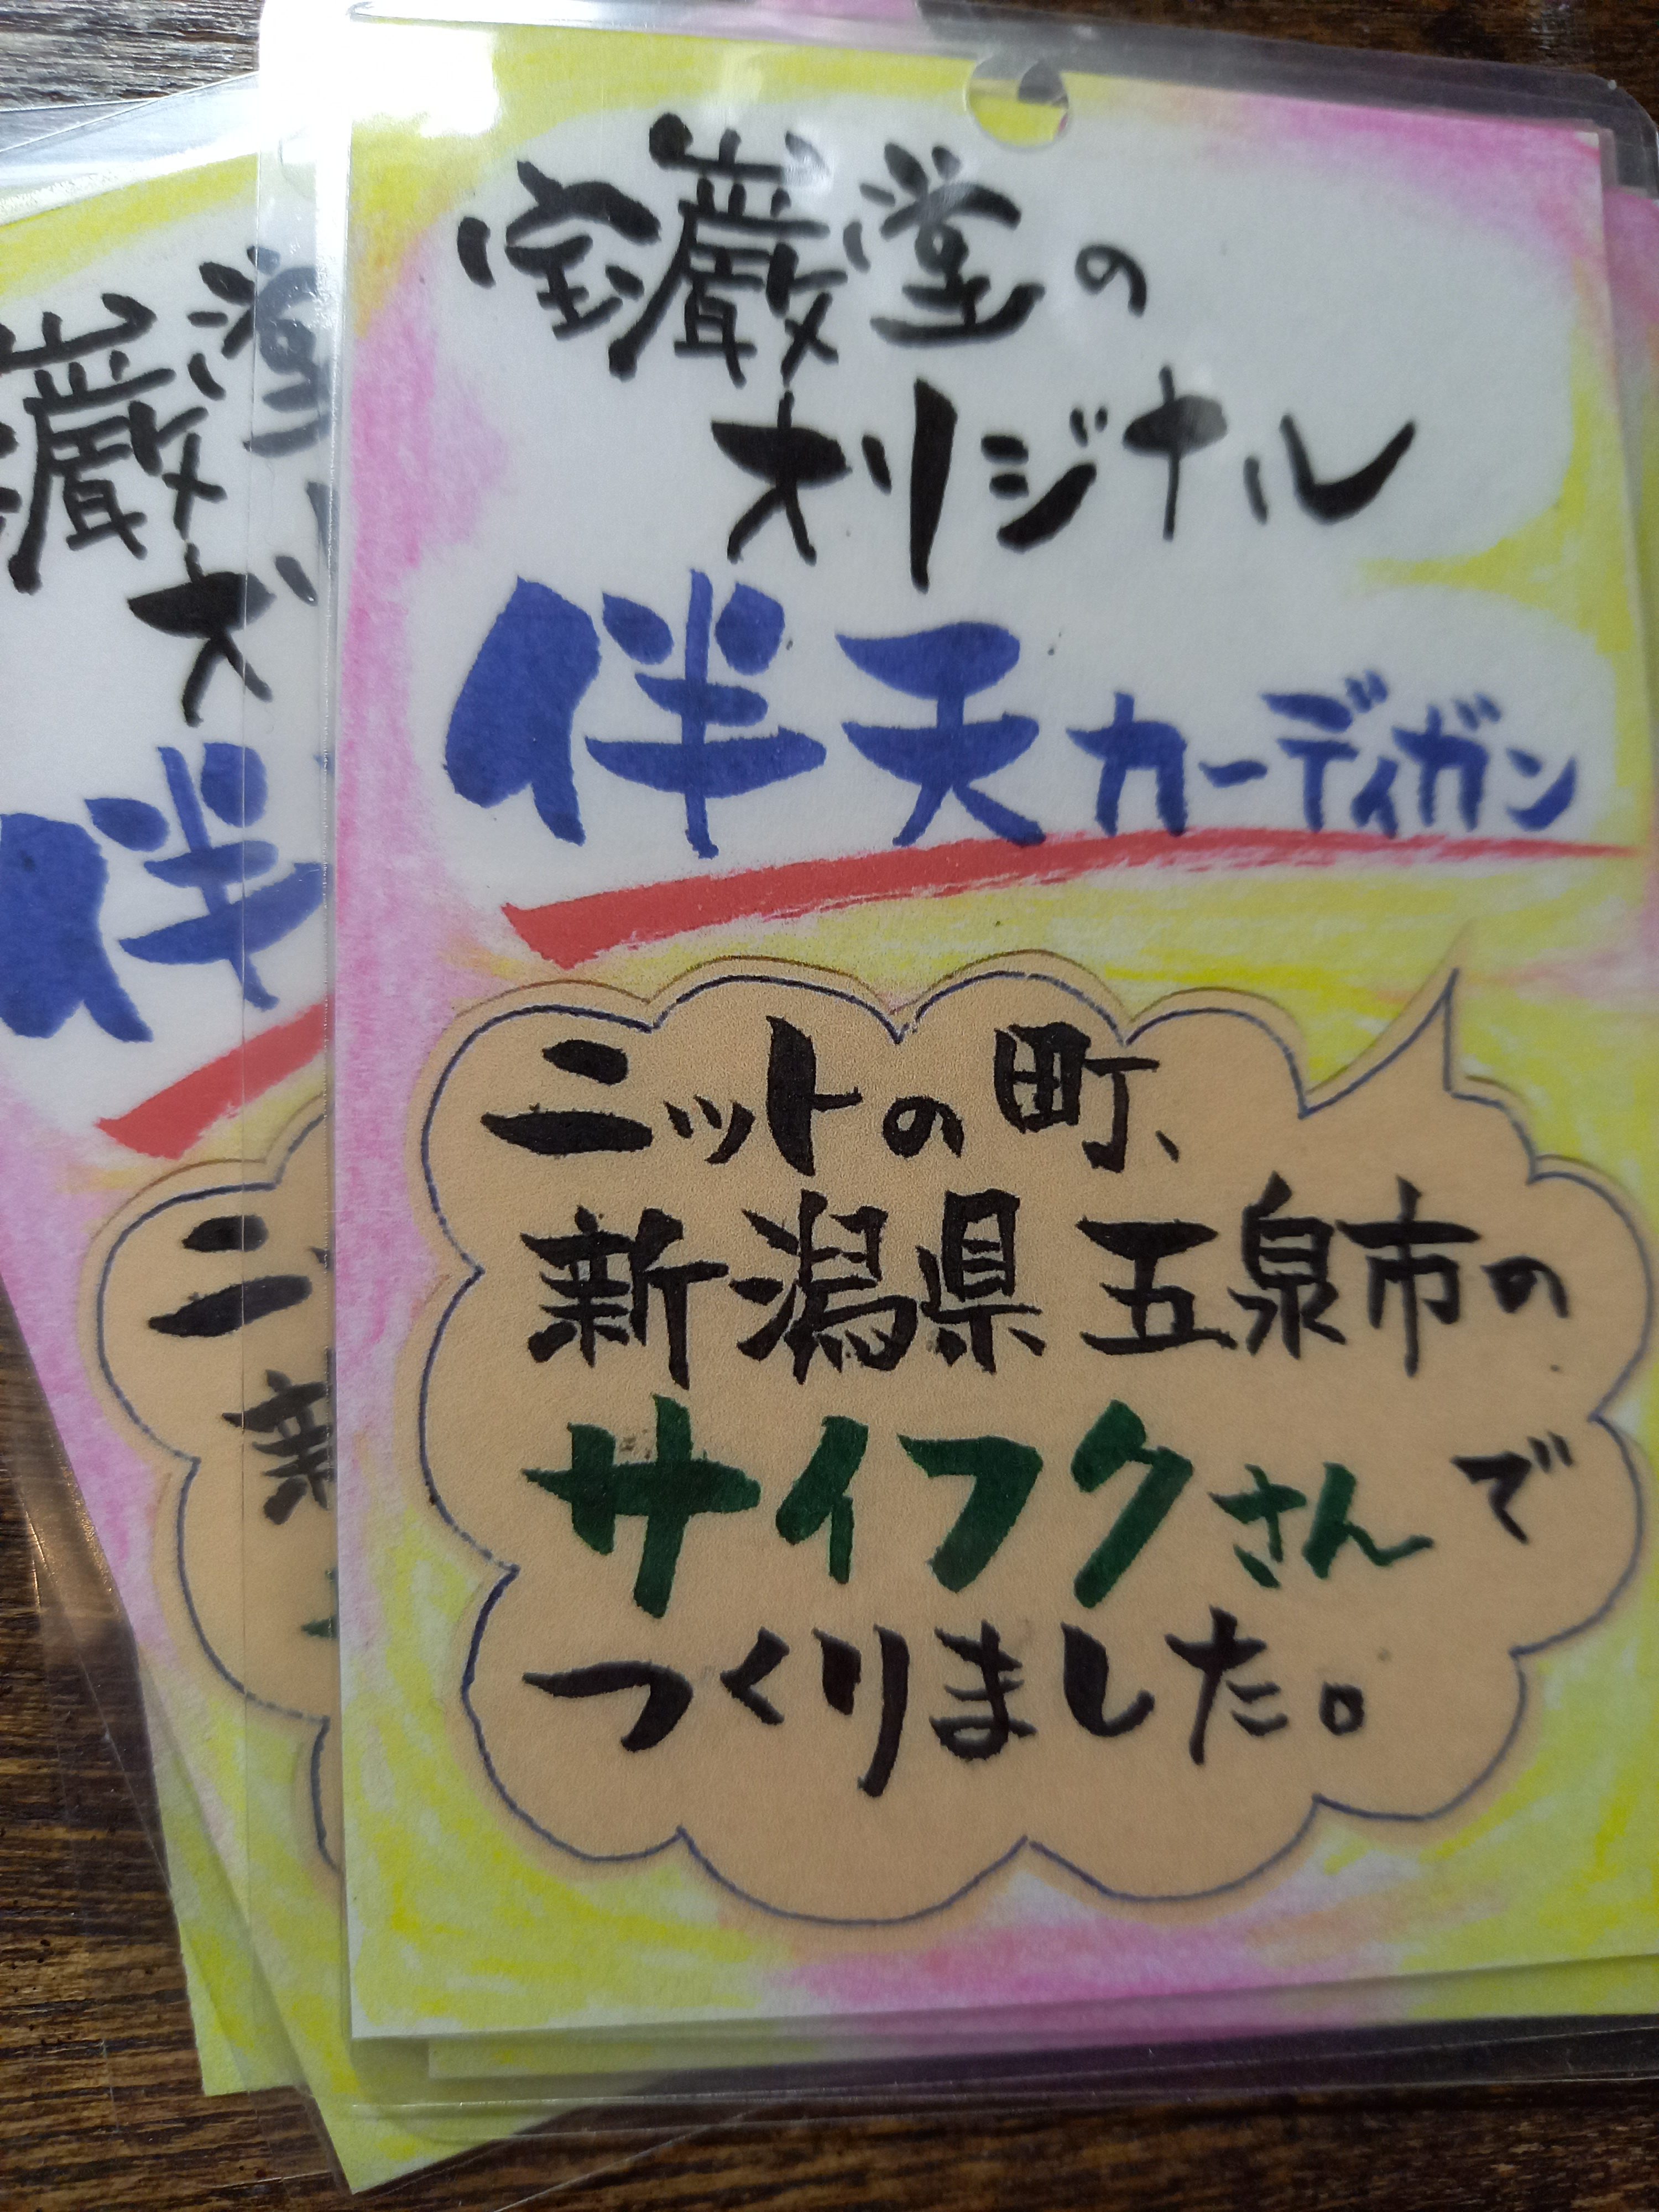 宝巌堂の
オリジナル
伴天カーディガン
ニットの町、
新潟県五泉市の
サイフクさんで
つくりました。
巌堂
オリ
伴
ニッ
新